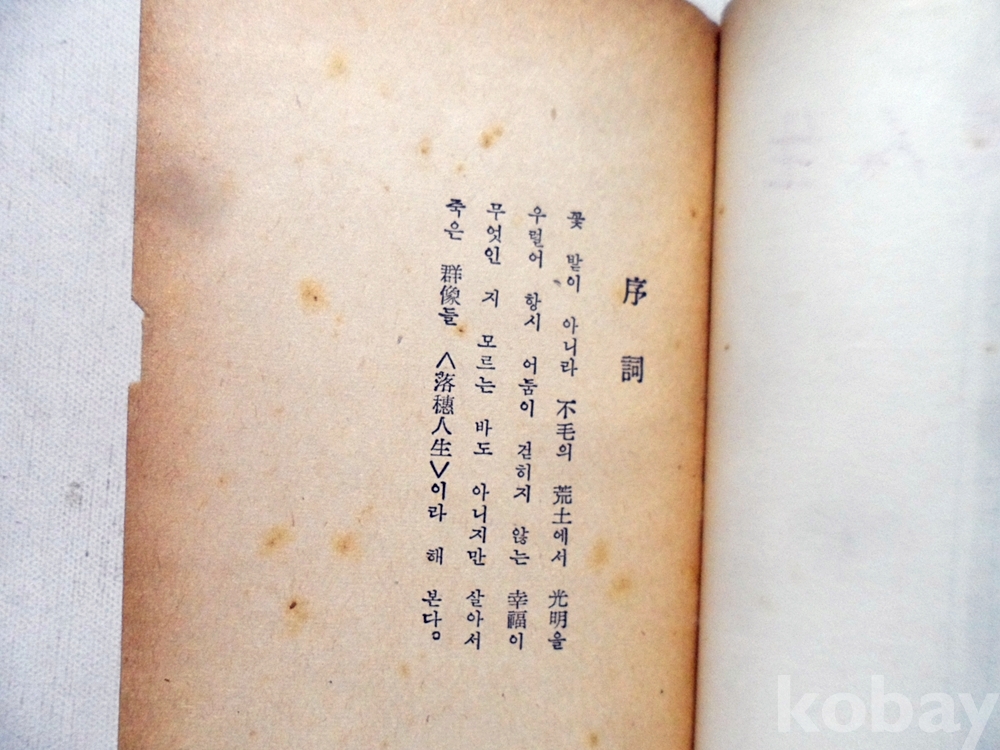 序詞
꽃 밭이 아니라 不毛의 荒土에서 光明을
우럴어 항시 어둠이 걷히지 않는 幸福이
무엇인 지 모르는 바도 아니지만 살아서
죽은 群像들 <落穗人生>이라 해 본다。
kobay